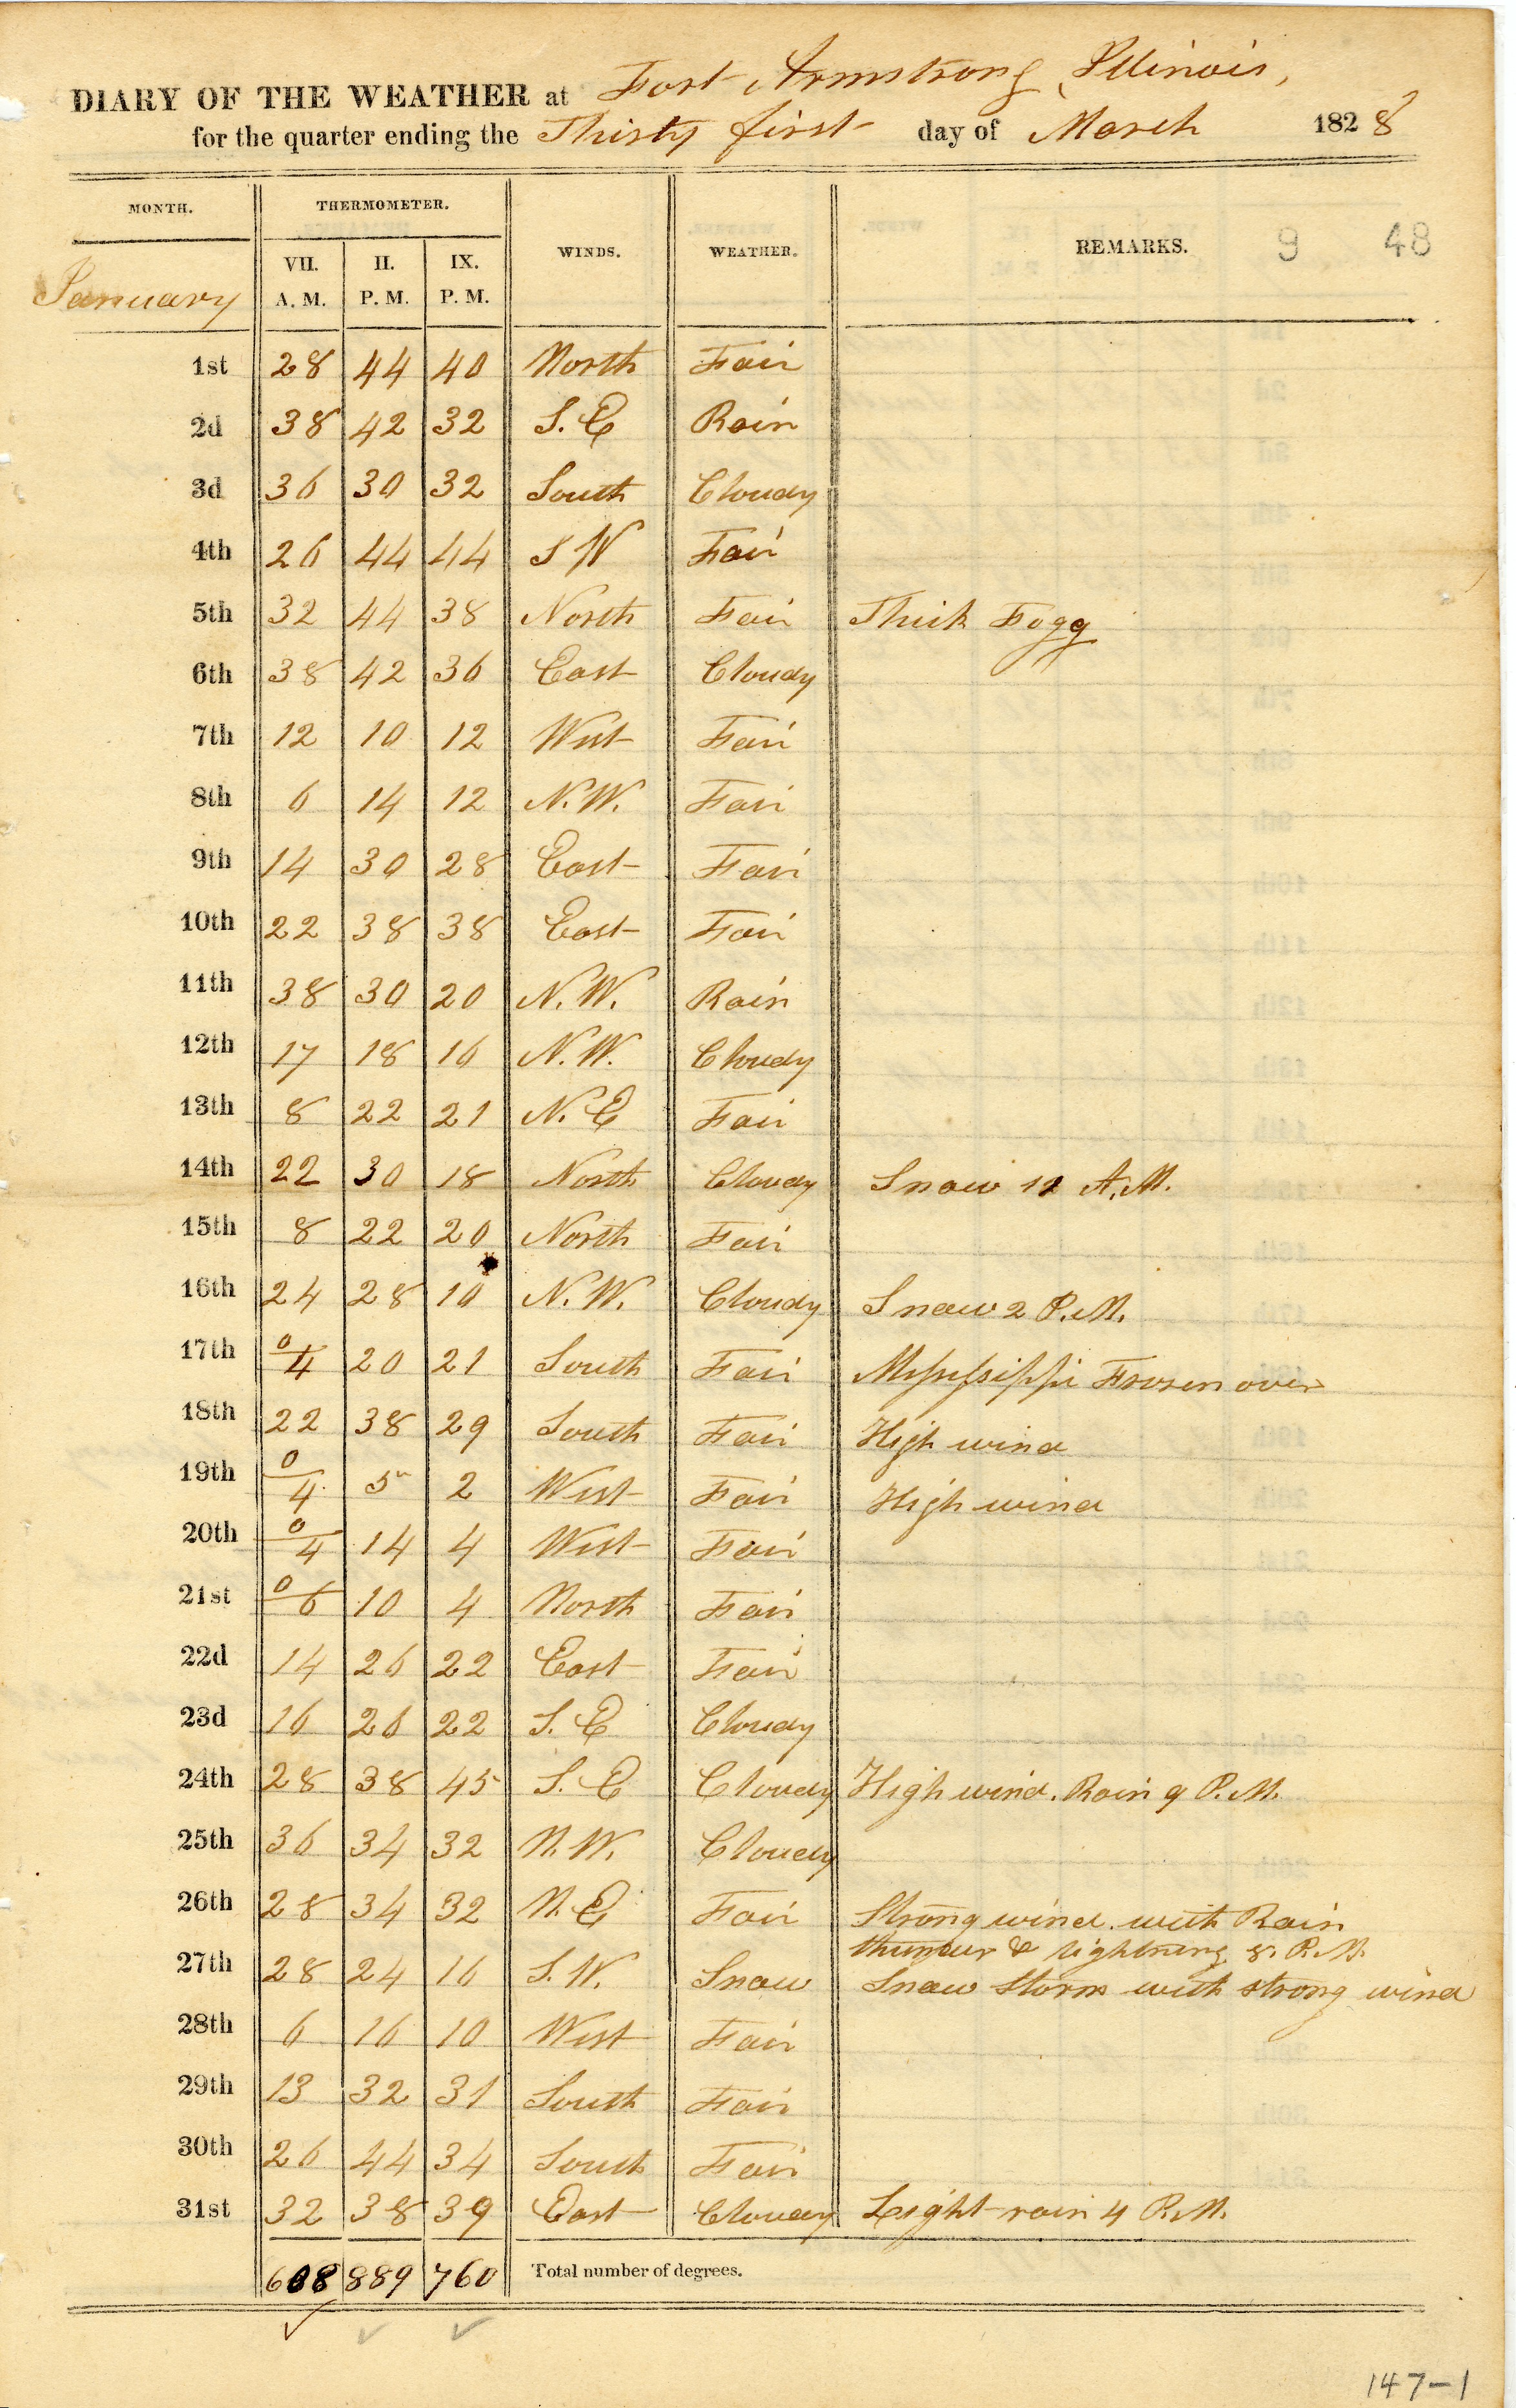 DIARY OF THE WEATHER at Fort Armstrong, Illinois,
for the quarter ending the Thirty first day of March 1828
MONTH. THERMOMETER. WINDS. WEATHER. REMARKS. 9 48
VII. II. IX.
January A. M. P. M. P. M.
1st 28 44 40 North Fair
2d 38 42 32 S. E Rain
3d 36 30 32 South Cloudy
4th 26 44 44 S W Fair
5th 32 44 38 North Fair Thick Fogg
6th 38 42 36 East Cloudy
7th 12 10 12 West Fair
8th 6 14 12 N. W. Fair
9th 14 30 28 East Fair
10th 22 38 38 East Fair
11th 38 30 20 N. W. Rain
12th 17 18 16 N. W. Cloudy
13th 8 22 21 N. E Fair
14th 22 30 18 North Cloudy Snow 12 A.M.
15th 8 22 20 North Fair
16th 24 28 10 N. W. Cloudy Snow 2 P.M.
17th 0/4 20 21 South Fair Mississippi Frozen over
18th 22 38 29 South Fair High wind
19th 0/4 5 2 West Fair High wind
20th 0/4 14 4 West Fair
21st 0/6 10 4 North Fair
22d 14 26 22 East Fair
23d 16 26 22 S. E Cloudy
24th 28 38 45 S. E Cloudy High wind. Rain 9 P. M.
25th 36 34 32 N. W. Cloudy
26th 28 34 32 N. E Fair Strong wind. with Rain
thunder & lightning 8. P. M.
27th 28 24 16 S. W. Snow Snow Storm with strong wind
28th 6 16 10 West Fair
29th 13 32 31 South Fair
30th 26 44 34 South Fair
31st 32 38 39 East Cloudy Light rain 4 P.M.
608 889 760 Total number of degrees.
147-1